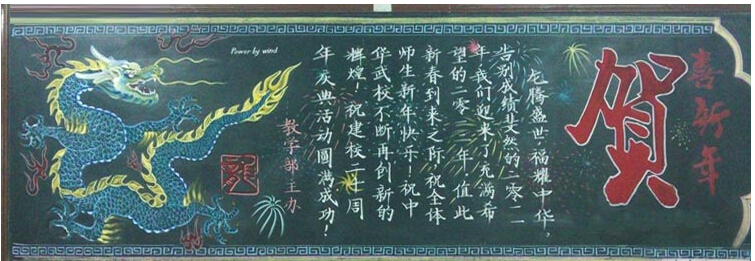 喜新年
贺
龙腾盛世,福耀中华,
告别成绩斐然的二零一一
年,我们迎来了充满希
望的二零一二年,值此
新春到来之际,祝全体
师生新年快乐!祝中
华武校不断再创新的
辉煌!祝建校二十周
年庆典活动圓满成功!
教学部主办
Power by wind